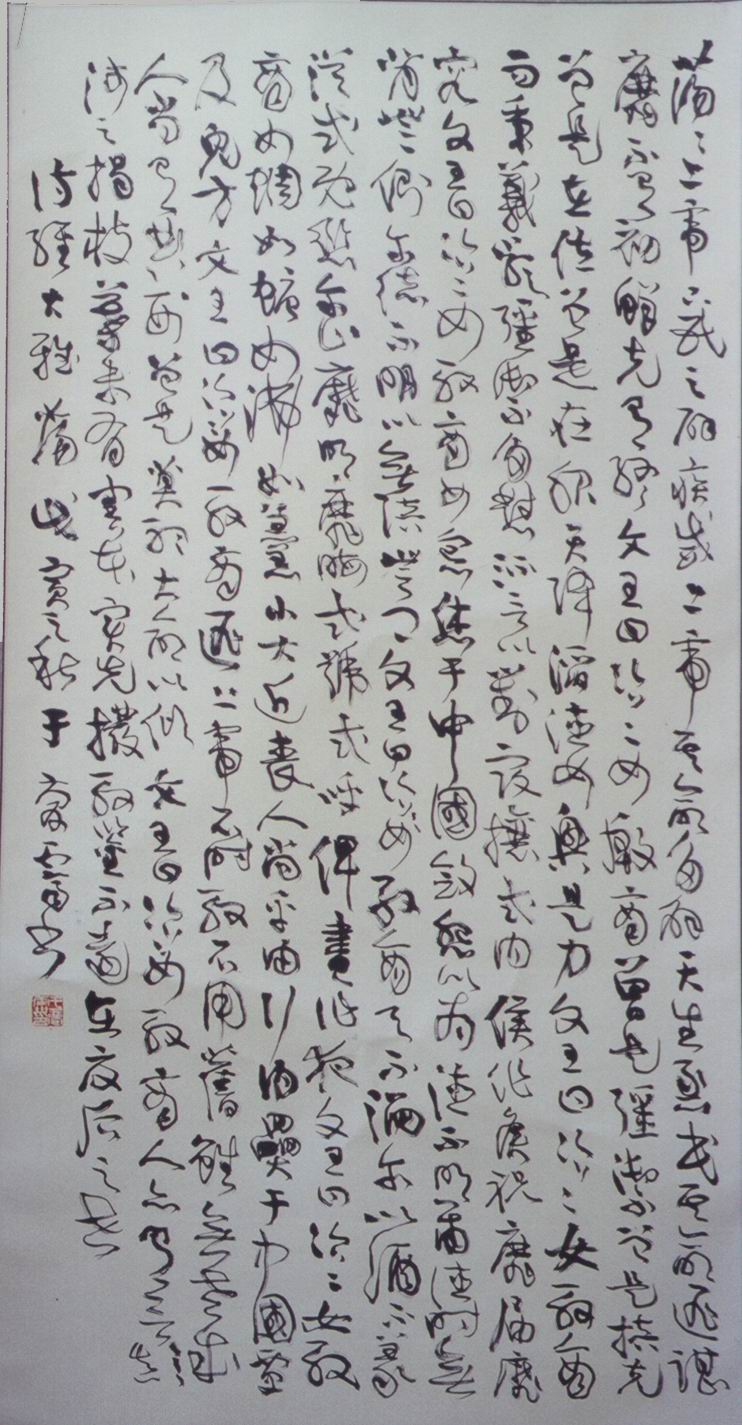 蕩々上帝下民之辟疾威上帝其命多辟天生烝民其命匪諶
靡不有初鮮克有終文王曰咨々女殷商曾是彊禦曾是掊克
曾是在位曾是在服天降滔德女興是力文王曰咨々女殷商
而秉義類彊禦多懟流言以對寇攘式內侯作侯祝靡屆靡
究文王曰咨々女殷商女炰烋于中國斂怨以為德不明爾德時無
背無側爾德不明以無陪無卿文王曰咨々女殷商天不湎爾以酒不義
從式既愆爾止靡明靡晦式號式呼俾晝作夜文王曰咨々女殷
商如蜩如螗如沸如羹小大近喪人尚乎由行內奰于中國覃
及鬼方文王曰咨々女殷商匪上帝不時殷不用舊雖無老成
人尚有典刑曾是莫聽大命以傾文王曰咨々女殷商人亦有言顛
沛之揭枝葉未有害本實先撥殷鑒不遠在夏后之世
詩經大雅蕩戊寅之秋于書